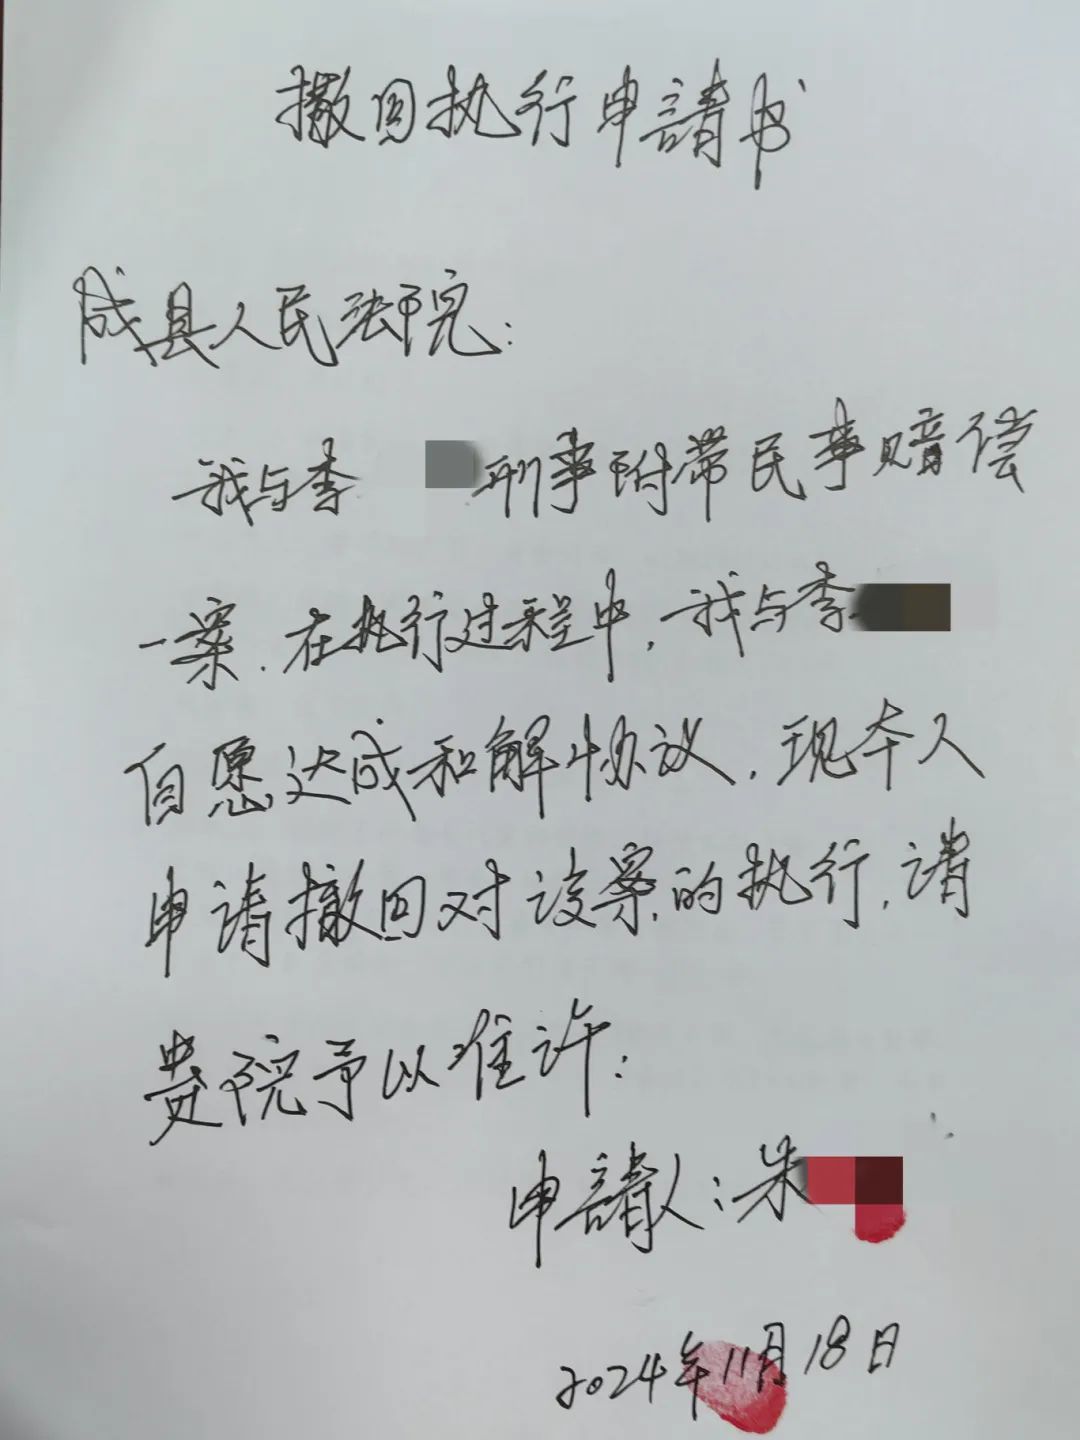 撤回执行申請书
成县人民法院：
我与李 刑事附带民事赔偿
一案，在执行过程中，我与李
自愿达成和解协议，现本人
申请撤回对该案的执行，请
贵院予以准许：
申請人：朱
2024年11月18日